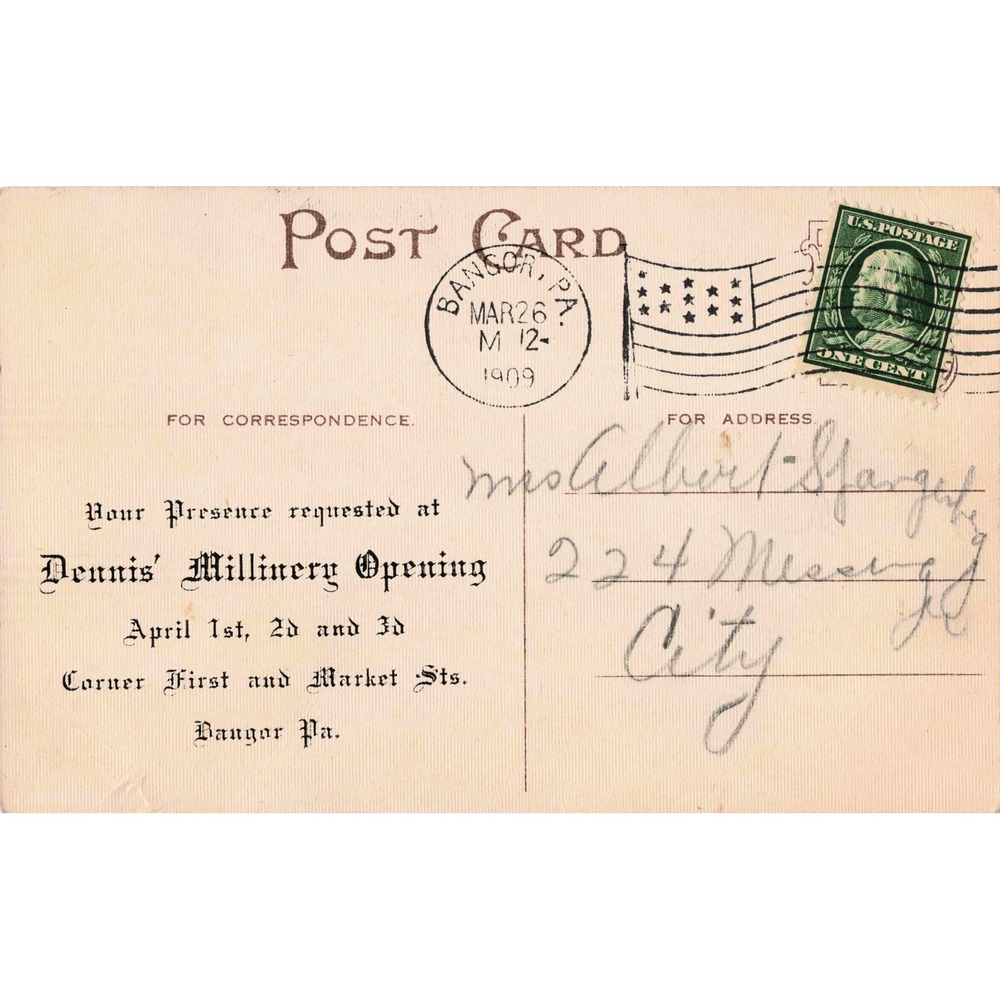 POST CARD
BANGOR, PA.
MAR 26
M 12-
1909
U.S. POSTAGE
ONE CENT
FOR CORRESPONDENCE.
FOR ADDRESS.
Your Presence requested at
Dennis' Millinery Opening
April 1st, 2d and 3d
Corner First and Market Sts.
Bangor Pa.
Mrs Albert
224
City